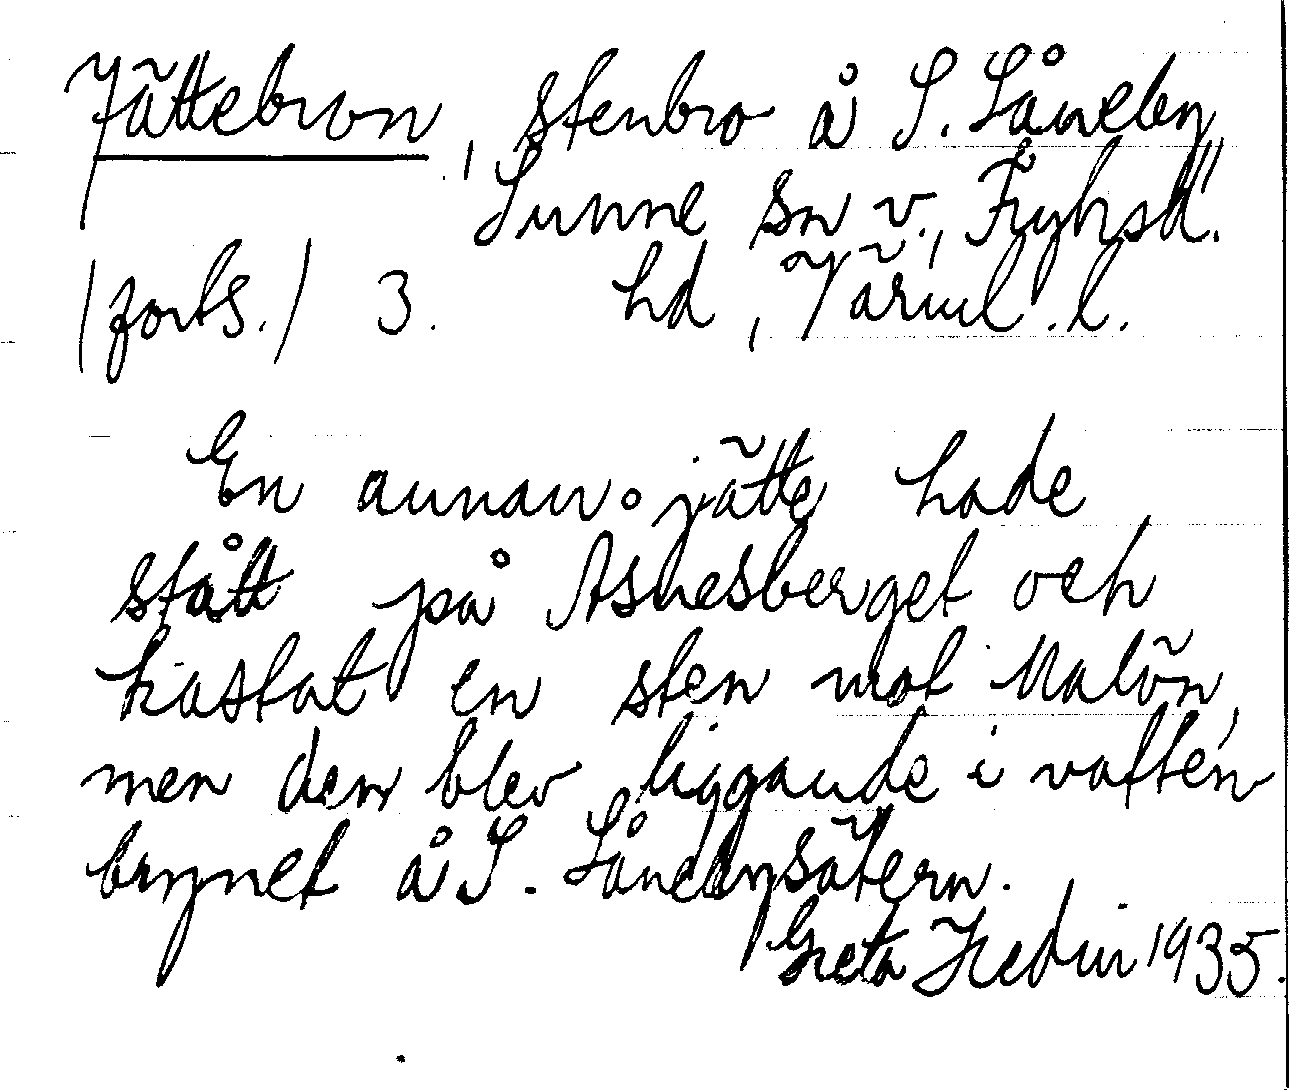 Jättebron, stenbro å S. Låneby,
Sunne sn v., Fryksd.
(forts.) 3. hd, Värml. l.
En annan jätte hade
stått på Asnesberget och
kastat en sten mot Malön,
men den blev liggande i vatten
brynet å S. Lånebysätern.
Greta Hedin 1935.